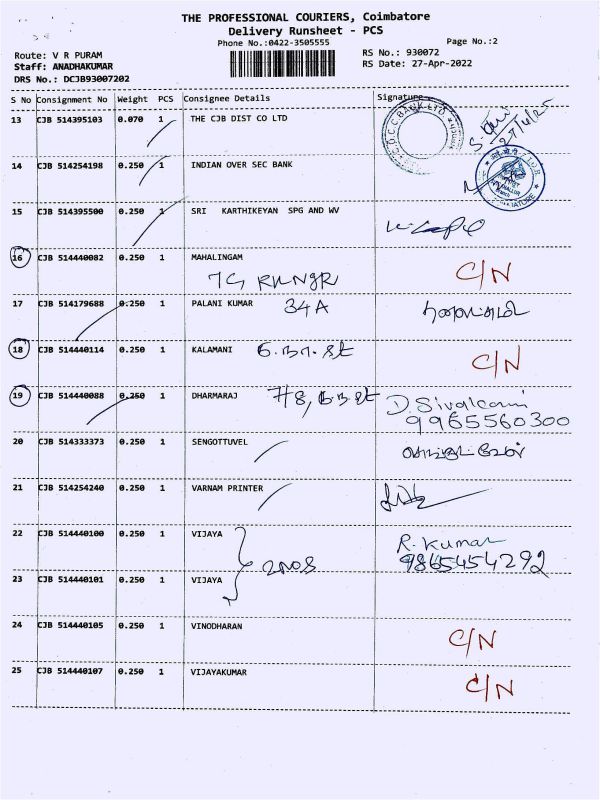 THE PROFESSIONAL COURIERS, Coimbatore
Delivery Runsheet - PCS
Phone No.:0422-3505555
Page No.:2
Route: V R PURAM
RS No.: 930072
Staff: ANADHAKUMAR
RS Date: 27-Apr-2022
DRS No.: DCJB93007202
S No Consignment No Weight PCS Consignee Details Signature
13 CJB 514395103 0.070 1 THE CJB DIST CO LTD
14 CJB 514254198 0.250 1 INDIAN OVER SEC BANK
15 CJB 514395500 0.250 1 SRI KARTHIKEYAN SPG AND WV
16 CJB 514440082 0.250 1 MAHALINGAM C/N
17 CJB 514179688 0.250 1 PALANI KUMAR 34A
18 CJB 514440114 0.250 1 KALAMANI C/N
19 CJB 514440088 0.250 1 DHARMARAJ D. Sivakami
9965560300
20 CJB 514333373 0.250 1 SENGOTTUVEL
21 CJB 514254240 0.250 1 VARNAM PRINTER
22 CJB 514440100 0.250 1 VIJAYA R. Kumar
9865454292
23 CJB 514440101 0.250 1 VIJAYA
24 CJB 514440105 0.250 1 VINODHARAN C/N
25 CJB 514440107 0.250 1 VIJAYAKUMAR C/N